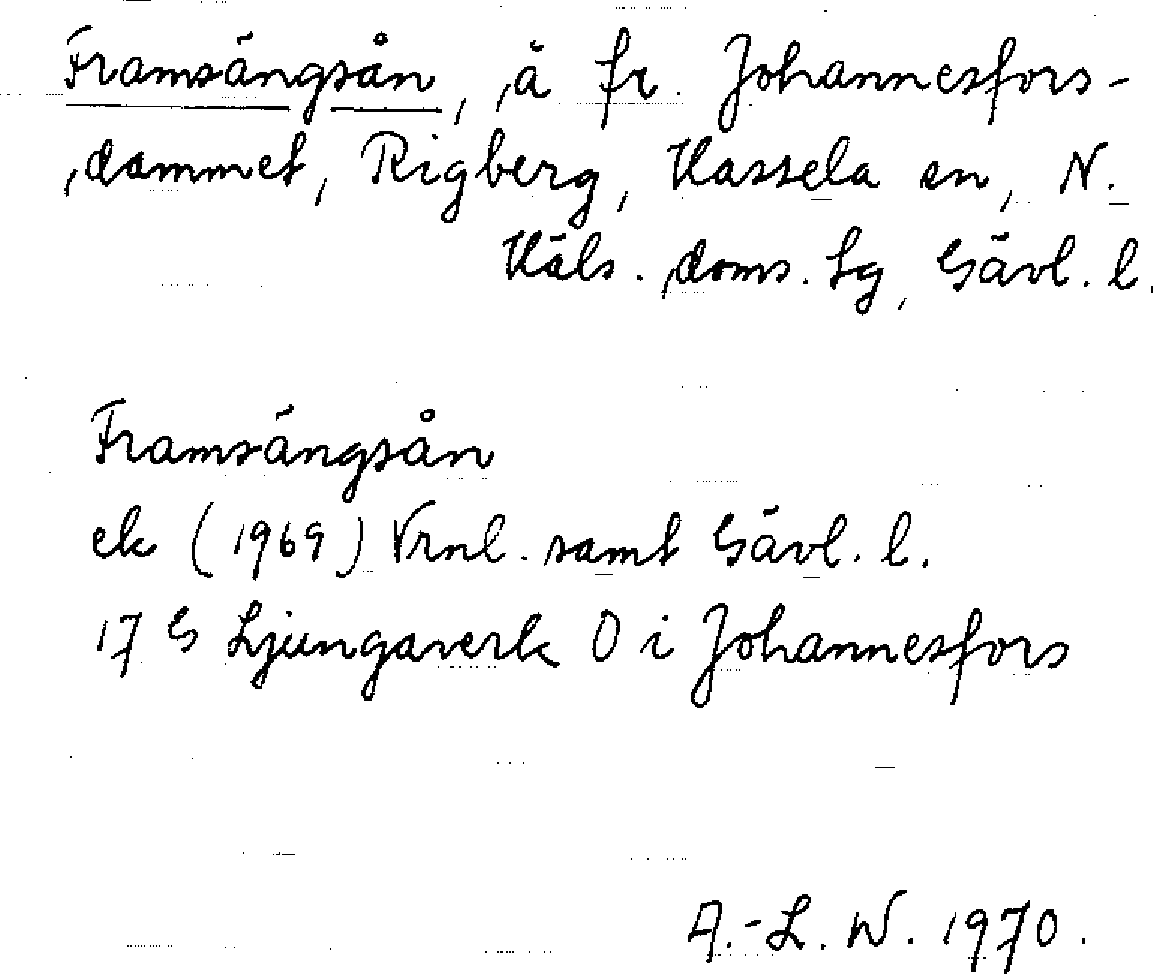 Framsängsån, å fr. Johannesfors-
dammet, Rigberg, Hassela sn, N.
Häls. doms. lg, Gävl. l.
Framsängsån
ek (1969) Vrnl. samt Gävl. l.
17 G Ljungaverk O i Johannesfors
A.-L. W. 1970.